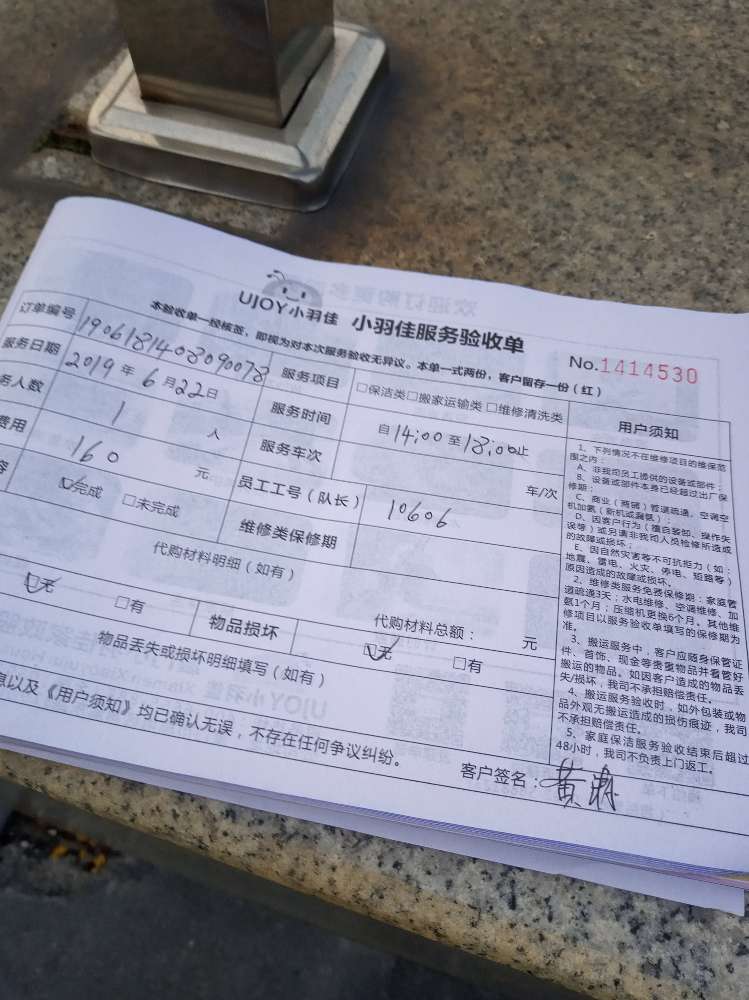 UJOY小羽佳 小羽佳服务验收单
No.1414530
本验收单一经核签，即视为对本次服务验收无异议。本单一式两份，客户留存一份（红）
订单编号 1906181403090078 服务项目 □保洁类□搬家运输类 □维修清洗类
服务日期 2019 年 6 月 22 日 服务时间 自 14:00 至 18:00止
务人数 1 人 服务车次 车/次
费用 160 元 员工工号（队长） 10606
☑完成 □未完成 维修类保修期
代购材料明细（如有）
代购材料总额： 元
☑无 □有 物品损坏 ☑无 □有
物品丢失或损坏明细填写（如有）
息以及《用户须知》均已确认无误，不存在任何争议纠纷。
客户签名：黄
用户须知
1、下列情况不在维修项目的维保范
围之内：
A、非我司员工提供的设备或部件；
B、设备或部件本身已经超过出厂保
修期；
C、商业（商铺）管道疏通、空调空
机加氨（新机或漏氨）；
D、因客户行为（擅自装卸、操作失
误等）或另请非我司人员检修所造成
的故障或损坏；
E、因自然灾害等不可抗拒力（如：
地震、雷电、火灾、停电、短路等）
原因造成的故障或损坏。
2、维修类服务免费保修期：家庭管
道疏通3天；水电维修、空调维修、加
氨1个月；压缩机更换6个月。其他维
修项目以服务验收单填写的保修期为
准。
3、搬运服务中，客户应随身保管证
件、首饰、现金等贵重物品并看管好
搬运的物品。如因客户造成的物品丢
失/损坏，我司不承担赔偿责任。
4、搬运服务验收时，如外包装或物
品外观无搬运造成的损伤痕迹，我司
不承担赔偿责任。
5、家庭保洁服务验收结束后超过
48小时，我司不负责上门返工。